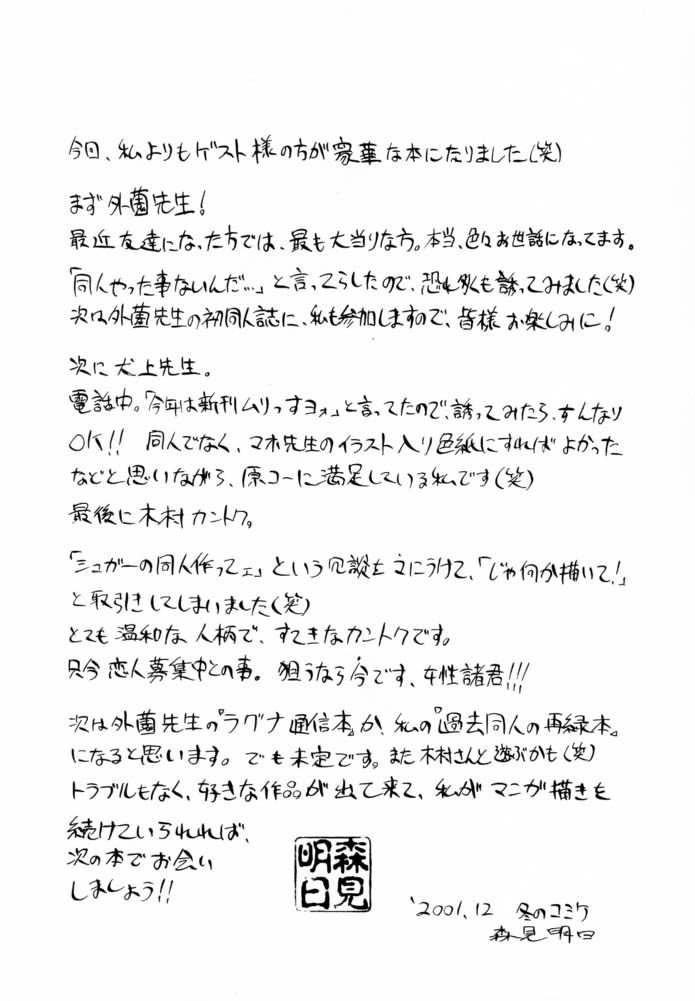 今回、私よりもゲスト様の方が豪華な本になりました(笑)
まず外薗先生!
最近友達になった方では、最も大当りな方。本当、色々お世話になってます。
「同人やった事ないんだ…」と言ってらしたので、恐れ多くも誘ってみました(笑)
次は外薗先生の初同人誌に、私も参加しますので、皆様お楽しみに!
次に犬上先生。
電話中。「今年は新刊ムリっすヨォ」と言ってたので、誘ってみたら、すんなり
OK!! 同人でなく、マホ先生のイラスト入り色紙にすればよかった
などと思いながら、原コーに満足している私です(笑)
最後に木村カントク。
「シュガーの同人作ってェ」という冗談をマにうけて、「じゃ何か描いて!」
と取引きしてしまいました(笑)
とても温和な人柄で、すてきなカントクです。
只今恋人募集中との事。狙うなら今です、女性諸君!!!
次は外薗先生の『ラグナ通信本』か、私の『過去同人の再録本』
になると思います。でも未定です。また木村さんと遊ぶかも(笑)
トラブルもなく、好きな作品が出て来て、私がマンガ描きを
続けていられれば、
次の本でお会い
しましょう!!
森見明日
'2001.12 冬のコミケ
森見明日